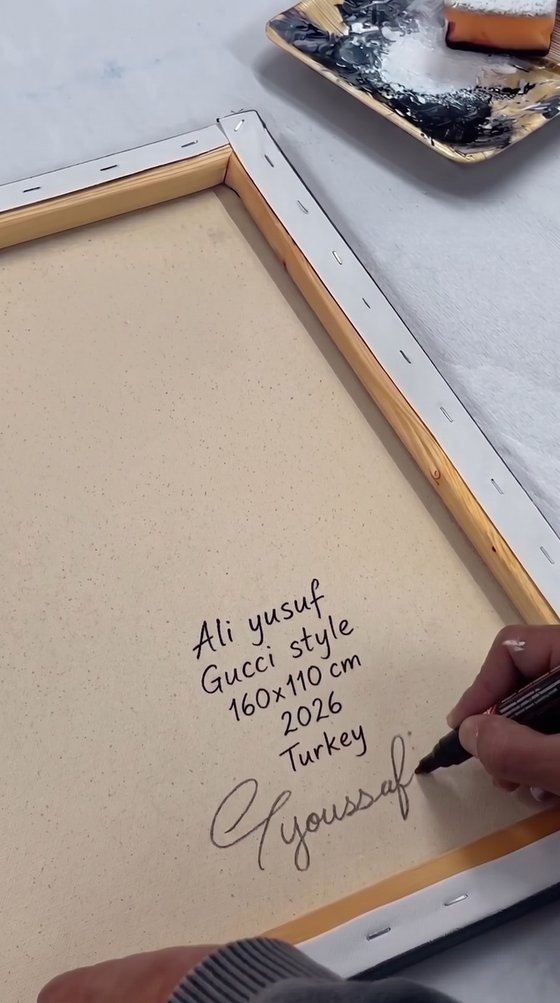 Ali yusuf
Gucci style
160x110 cm
2026
Turkey
youssaf